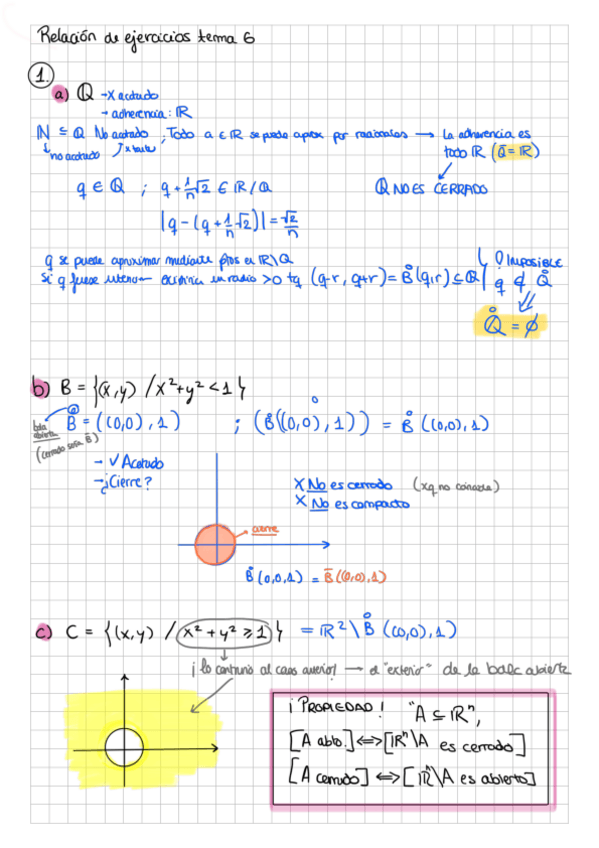 Relación de ejercicios tema 6
1.
a) ℚ → X acotado
→ adherencia: ℝ
ℕ ⊆ ℚ No acotado ; Todo a ∈ ℝ se puede aprox por racionales → La adherencia es
↓ no acotado todo ℝ (ℚ̄ = ℝ)
q ∈ ℚ ; q + 1/n √2 ∈ ℝ/ℚ ℚ NO ES CERRADO
|q - (q + 1/n √2)| = √2/n
q se puede aproximar mediante ptos en ℝ\ℚ
¡IMPOSIBLE
Si q fuese interior existiría un radio >0 tq (q-r, q+r) = B̊(q,r) ⊆ ℚ | q ∉ ℚ̊
⇓
ℚ̊ = ∅
b) B = {(x,y) / x²+y² < 1}
bola abierta B̊ = ((0,0), 1) ; (B̊((0,0), 1))° = B̊ ((0,0), 1)
(cerrado sería B̄)
→ √ Acotado
→ ¿Cierre?
X No es cerrado (xq no coincide)
X No es compacto
cierre
B̊ (0,0,1) = B̄((0,0),1)
c) C = {(x,y) / x² + y² ≥ 1} = ℝ² \ B̊ ((0,0), 1)
¡ lo contrario al caso anterior! → el "exterior" de la bola abierta
¡PROPIEDAD! "A ⊆ ℝⁿ,
[A abto.] ⟺ [ℝⁿ\A es cerrado]
[A cerrado] ⟺ [ℝⁿ\A es abierto]